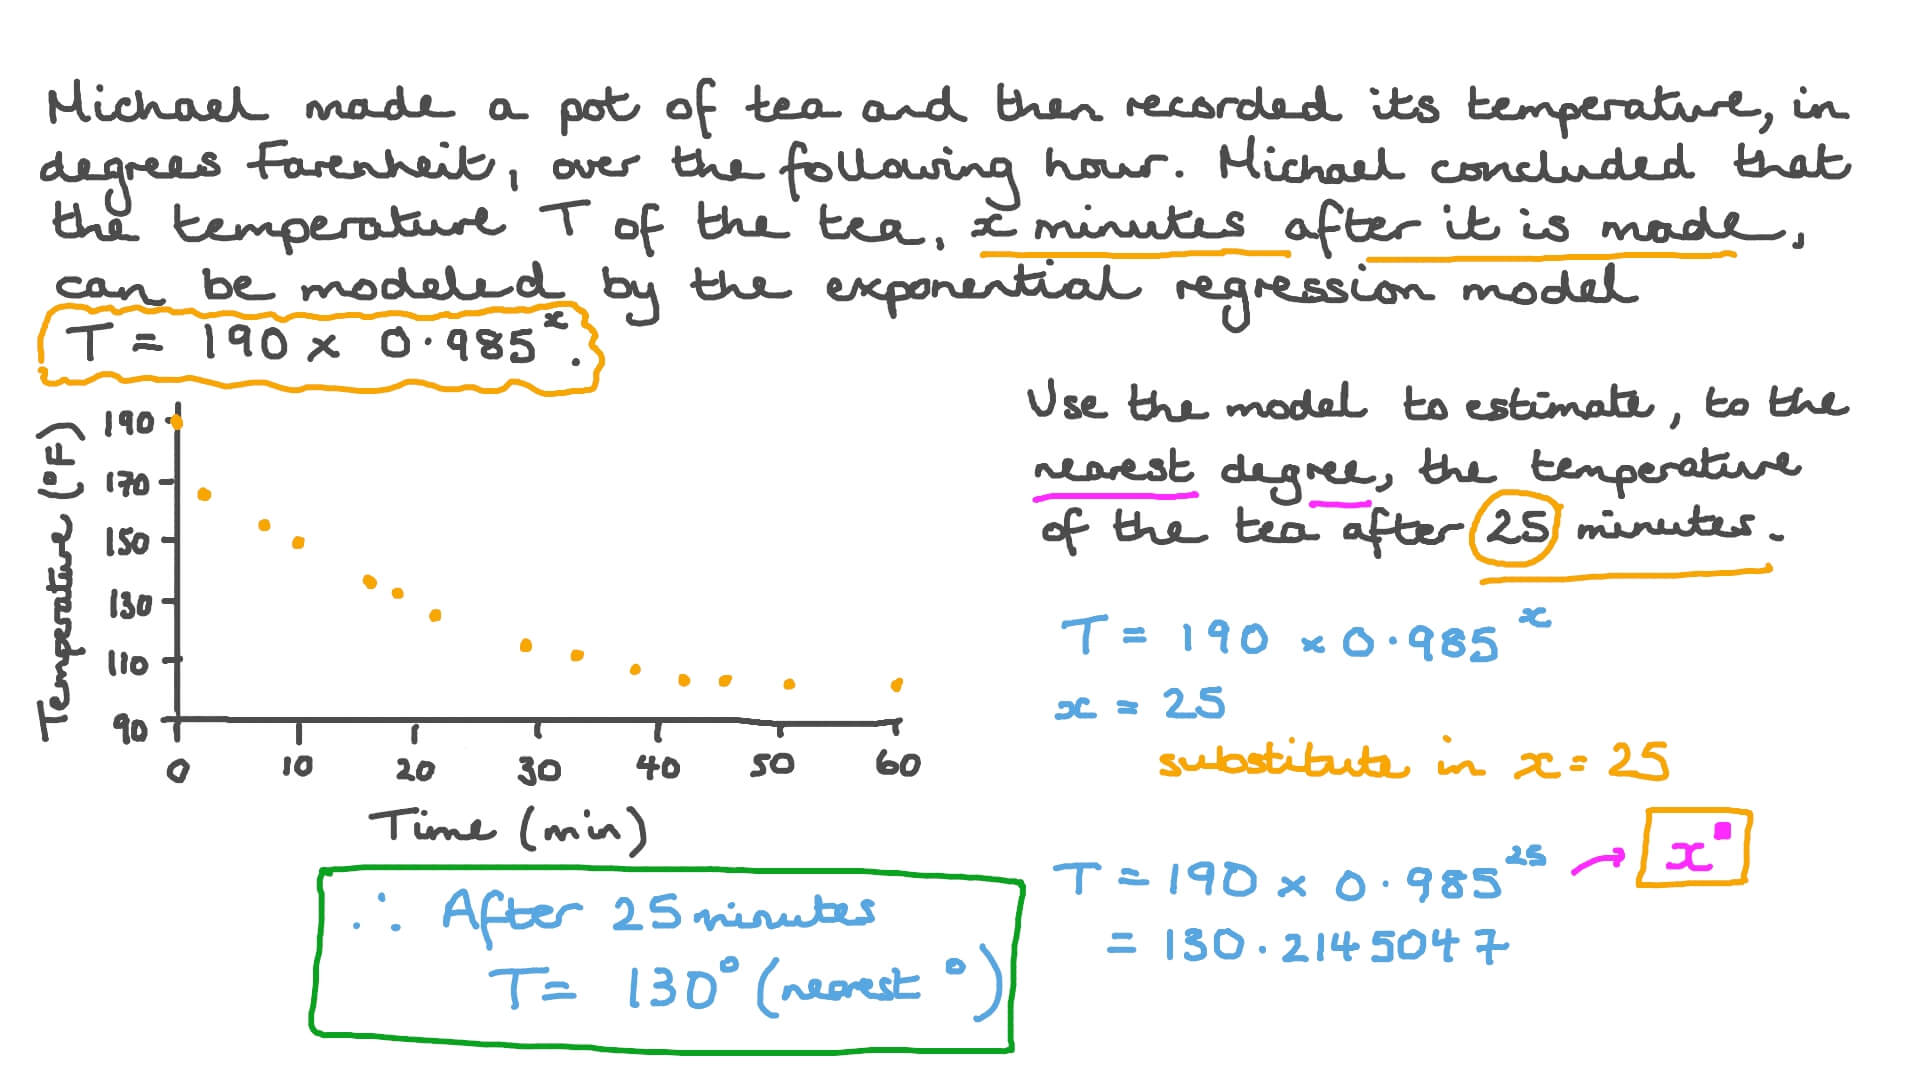 Michael made a pot of tea and then recorded its temperature, in
degrees Farenheit, over the following hour. Michael concluded that
the temperature T of the tea, x minutes after it is made,
can be modeled by the exponential regression model
T = 190 × 0.985ˣ.
Use the model to estimate, to the
nearest degree, the temperature
of the tea after 25 minutes.
Temperature (°F)
190
170
150
130
110
90
0 10 20 30 40 50 60
Time (min)
T = 190 × 0.985ˣ
x = 25
substitute in x = 25
T = 190 × 0.985²⁵ → x▪
= 130.2145047
∴ After 25 minutes
T = 130° (nearest °)